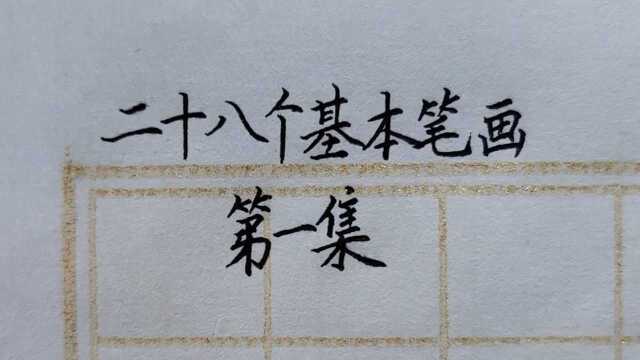 二十八个基本笔画
第一集